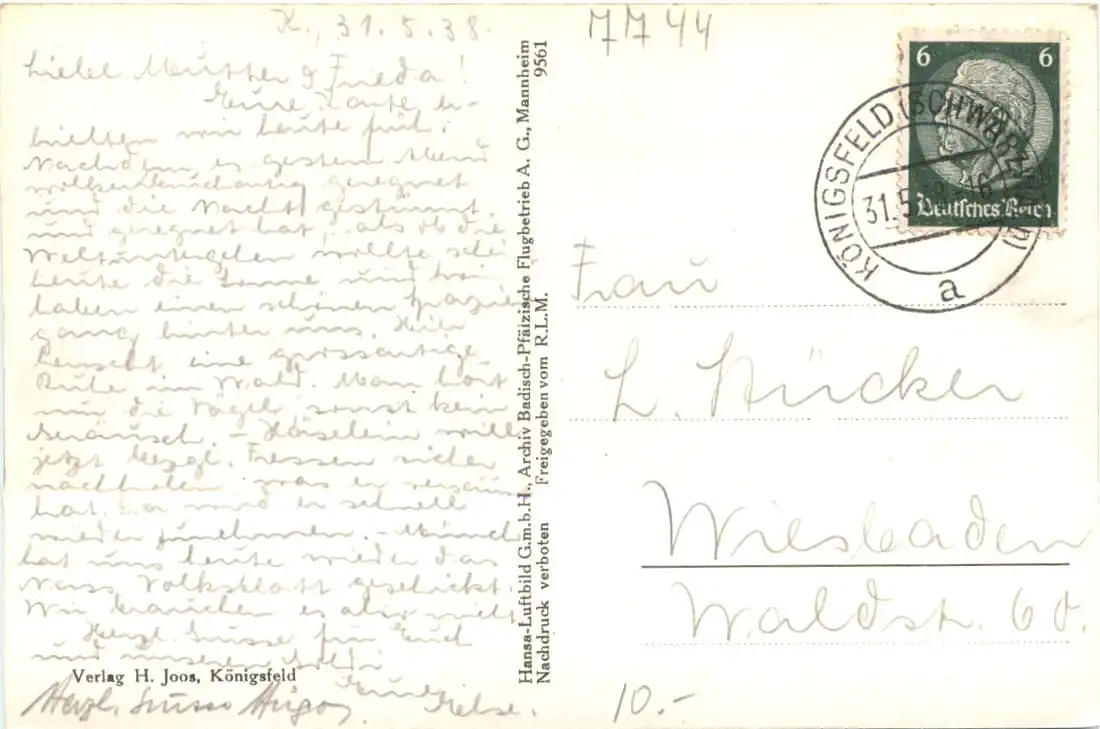 K., 31.5.38.
Liebe Mutter & Frieda!
Eure Karte er-
hielten wir heute früh.
Nachdem es gestern
geregnet
und die Nacht gestürmt
und geregnet hat, als ob die
Welt untergehen wollte,
heute die Sonne und wir
haben einen schönen Spazier
gang hinter uns. Hier
herrscht eine grossartige
Ruhe im Wald. Man hört
nur die Vögel, sonst kein
Geräusch. – Häselein will
jetzt bezgl. Fressen sicher
nachholen was er versäumt
hat. Da wird er schnell
wieder zunehmen. –
hat uns heute wieder das
Nass. Volksblatt geschickt.
Wir brauchen es aber nicht.
Herzl. Grüsse für Euch
und unseren
Eure Else.
Herzl. Grüsse Hugo
Verlag H. Joos, Königsfeld
Hansa-Luftbild G.m.b.H., Archiv Badisch-Pfälzische Flugbetrieb A. G., Mannheim
Nachdruck verboten Freigegeben vom R.L.M. 9561
7744
6 6
Deutsches Reich
KÖNIGSFELD (SCHWARZWALD)
31.5.38.-16
a
Frau
L. Stücker
Wiesbaden
Waldstr. 60.
10.-